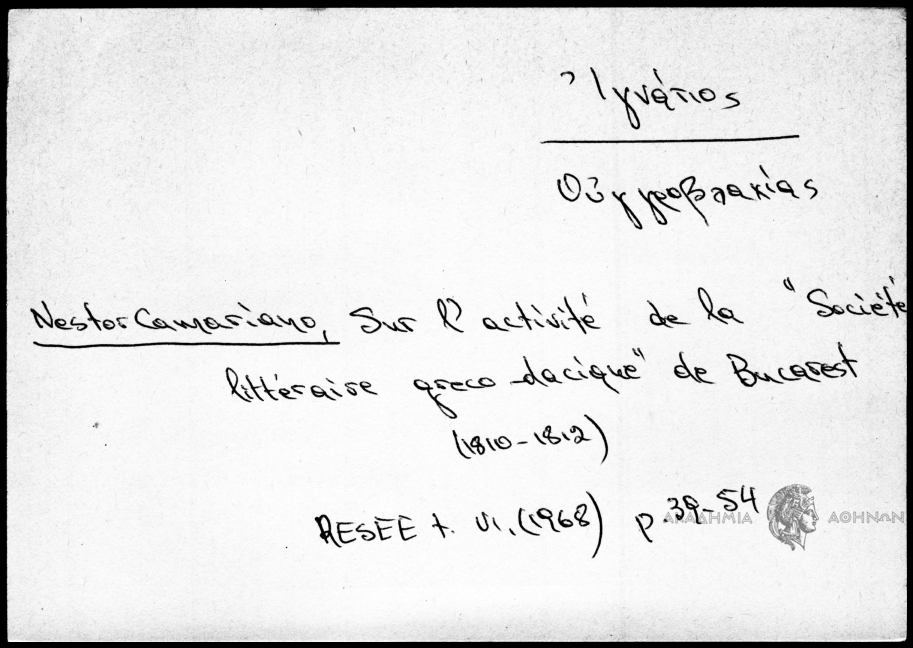 Ἰγνάτιος
Οὑγγροβλακίας
Nestor Camariano, Sur l'activité de la "Société
littéraire greco-dacique" de Bucarest
(1810-1812)
RESEE t. VI, (1968) p. 39-54
ΑΚΑΔΗΜΙΑ ΑΘΗΝΩΝ